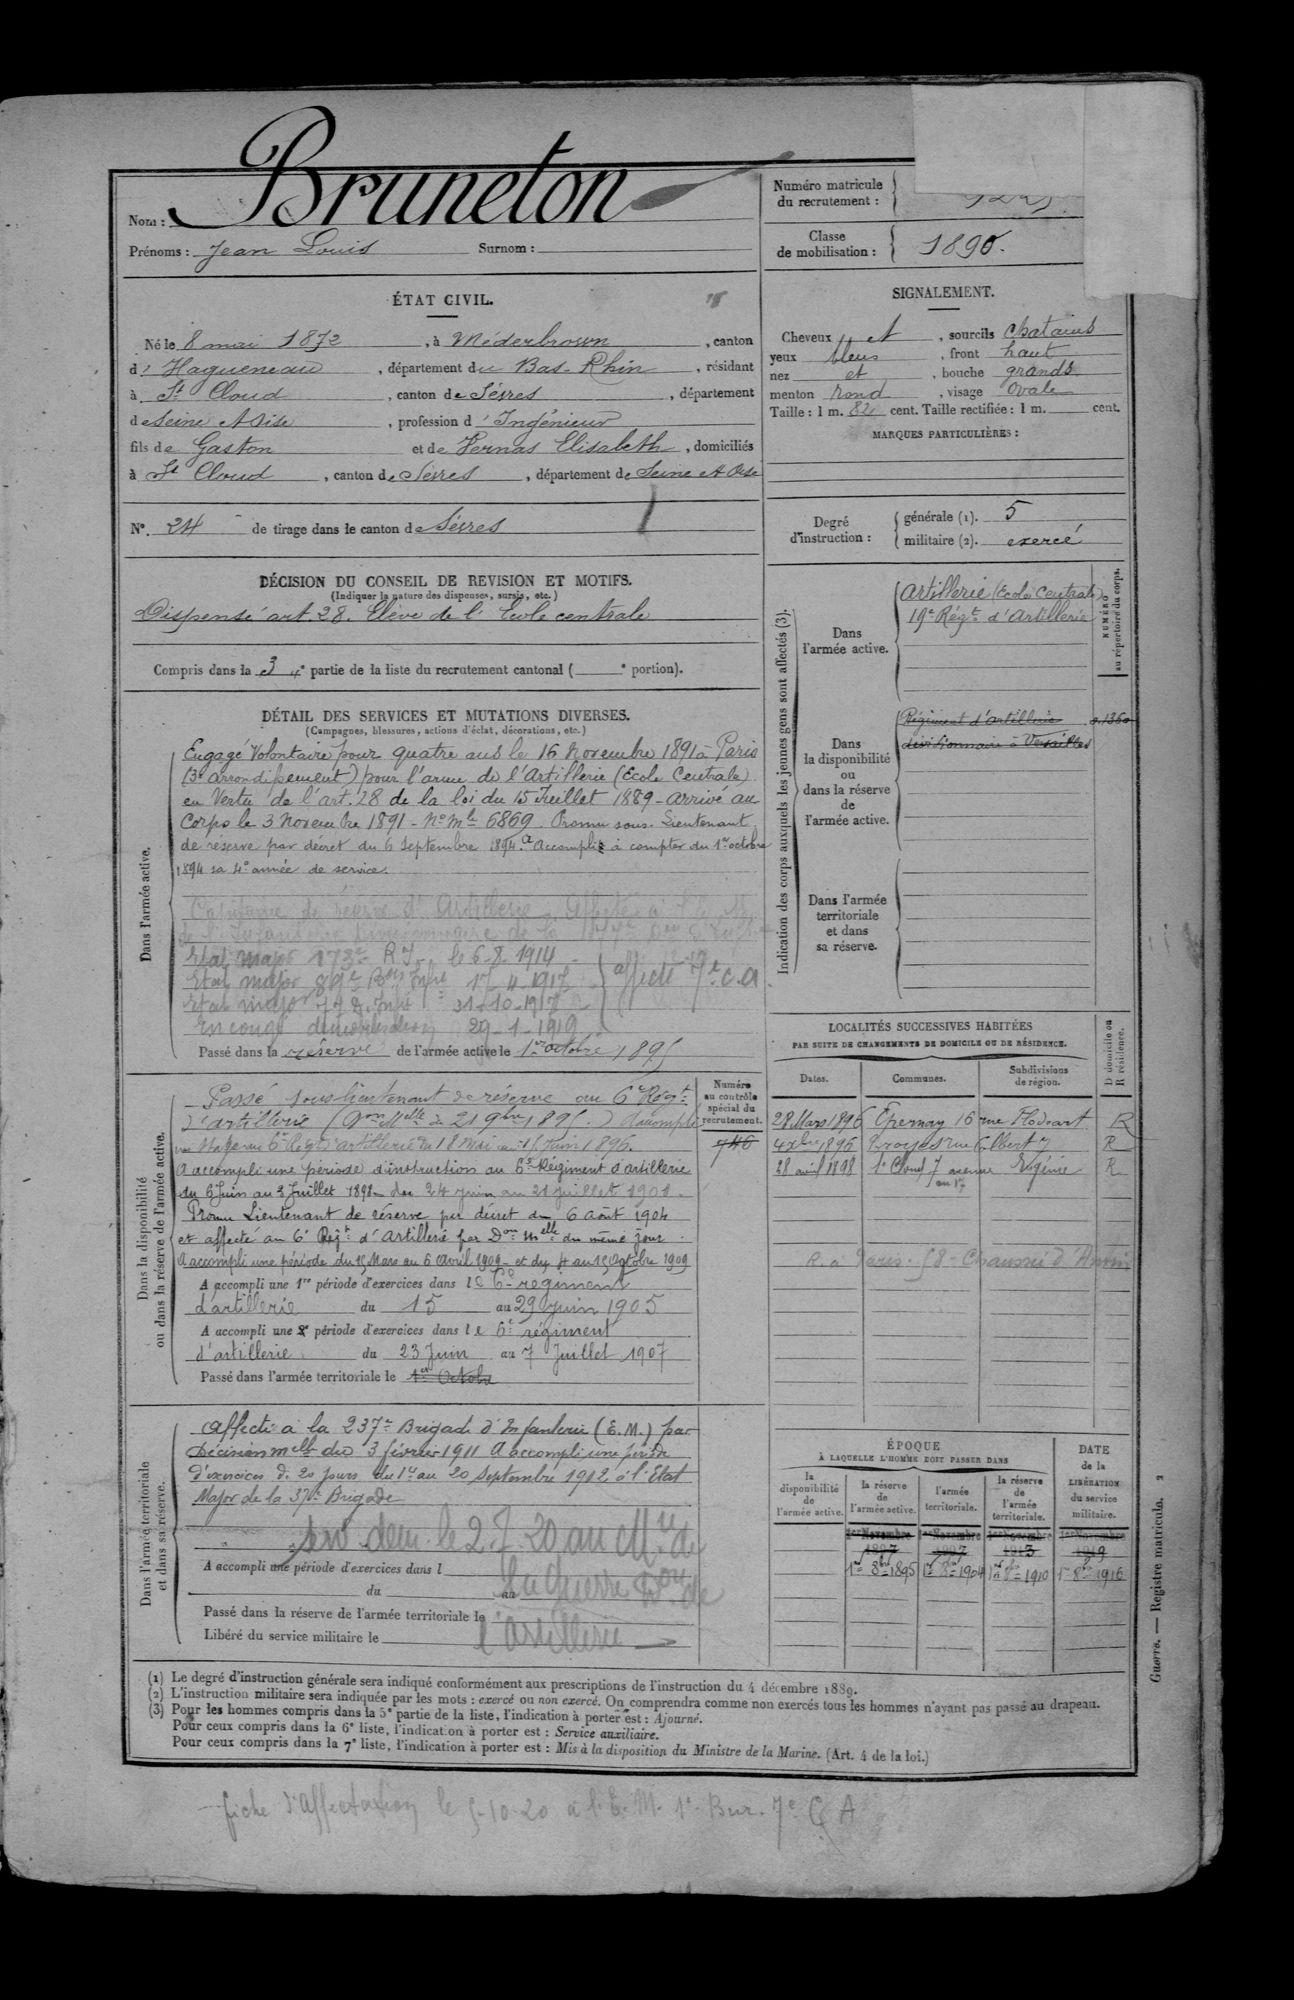 Nom : Bruneton
Prénoms : Jean Louis Surnom :
Numéro matricule
du recrutement :
Classe
de mobilisation : 1890.
ÉTAT CIVIL.
Né le 8 mai 1872, à Niederbrown, canton
d' Hagueneau, département du Bas-Rhin, résidant
à St Cloud, canton de Sèvres, département
de Seine et Oise, profession d'Ingénieur
fils de Gaston et de Vernas Elisabeth, domiciliés
à St Cloud, canton de Sèvres, département de Seine et Oise
N°. 24 de tirage dans le canton de Sèvres
SIGNALEMENT.
Cheveux et, sourcils chatains
yeux bleus, front haut
nez et, bouche grands
menton rond, visage ovale
Taille : 1 m. 82 cent. Taille rectifiée : 1 m. cent.
MARQUES PARTICULIÈRES :
Degré
d'instruction :
générale (1). 5
militaire (2). exercé
DÉCISION DU CONSEIL DE REVISION ET MOTIFS.
(Indiquer la nature des dispenses, sursis, etc.)
Dispensé art 28. Elève de l'Ecole centrale
Compris dans la 3e partie de la liste du recrutement cantonal ( e portion).
DÉTAIL DES SERVICES ET MUTATIONS DIVERSES.
(Campagnes, blessures, actions d'éclat, décorations, etc.)
Dans l'armée active.
Engagé Volontaire pour quatre ans le 16 Novembre 1891 à Paris
(3e arrondissement) pour l'arme de l'Artillerie (Ecole Centrale)
en Vertu de l'art. 28 de la loi du 15 Juillet 1889 - arrivé au
Corps le 3 Novembre 1891 - No Mle 6869. Promu sous-Lieutenant
de réserve par décret du 6 Septembre 1894. a accompli à compter du 1er octobre
1894 sa 4e année de service.
Capitaine de réserve d'Artillerie Affecté à l'
Etat major 173e R I. le 6-8-1914
Etat major 89e Infie 17-4-1917
Etat major 31-10-1917
affecté 7e C.A.
En congé démobilisation 29-1-1919
Passé dans la réserve de l'armée active le 1er octobre 1895
Dans la disponibilité
ou dans la réserve de l'armée active.
Numéro
au contrôle
spécial du
recrutement.
746
Passé sous-lieutenant de réserve au 6e Régt
d'artillerie (Don Melle du 21 9bre 1895.) A accompli
un stage au 6e Régt d'artillerie du 18 Mai au 15 Juin 1896.
A accompli une période d'instruction au 6e Régiment d'artillerie
du 6 Juin au 3 Juillet 1898 - du 24 juin au 21 juillet 1901.
Promu Lieutenant de réserve par décret du 6 Août 1904
et affecté au 6e Régt d'Artillerie par Don Melle du même jour
A accompli une période du 15 Mars au 6 Avril 1909 - et du 4 au 15 Octobre 1909
A accompli une 1re période d'exercices dans le 6e régiment
d'artillerie du 15 au 29 juin 1905
A accompli une 2e période d'exercices dans le 6e régiment
d'artillerie du 23 Juin au 7 Juillet 1907
Passé dans l'armée territoriale le 1er Octobre
Dans l'armée territoriale
et dans sa réserve.
Affecté à la 237e Brigade d'Infanterie (E.M.) par
Décision melle du 3 février 1911 A accompli une période
d'exercices de 20 jours du 1er au 20 septembre 1912 à l'Etat
Major de la 37e Brigade
le 2.7.20 au Mre de
la Guerre Don de
l'artillerie
A accompli une période d'exercices dans l
du au
Passé dans la réserve de l'armée territoriale le
Libéré du service militaire le
Indication des corps auxquels les jeunes gens sont affectés (3).
NUMÉRO
au répertoire du corps.
Dans
l'armée active.
Artillerie (Ecole Centrale)
19e Régt d'Artillerie
Dans
la disponibilité
ou
dans la réserve
de
l'armée active.
Régiment d'artillerie
divisionnaire à Versailles
Dans l'armée
territoriale
et dans
sa réserve.
LOCALITÉS SUCCESSIVES HABITÉES
PAR SUITE DE CHANGEMENTS DE DOMICILE OU DE RÉSIDENCE.
D domicile ou
R résidence.
Dates. Communes. Subdivisions
de région.
28 Mars 1896 Epernay 16 rue Flodoart R
4 Xbre 1896 Troyes rue Colbert 7 R
28 avril 1898 St Cloud 7 avenue Eugénie R
ou 17
R. à Paris. 58 - Chaussée d'Antin
ÉPOQUE
À LAQUELLE L'HOMME DOIT PASSER DANS
la
disponibilité
de
l'armée active.
la réserve
de
l'armée active.
l'armée
territoriale.
la réserve
de
l'armée
territoriale.
DATE
de la
LIBÉRATION
du service
militaire.
1er Novembre 1er Novembre 1er Novembre 1er Novembre
1897 1907 1913 1919
1er 8bre 1895 1er 8bre 1904 1er 8bre 1910 1er 8bre 1916
Guerre. — Registre matricule. 2
(1) Le degré d'instruction générale sera indiqué conformément aux prescriptions de l'instruction du 4 décembre 1889.
(2) L'instruction militaire sera indiquée par les mots : exercé ou non exercé. On comprendra comme non exercés tous les hommes n'ayant pas passé au drapeau.
(3) Pour les hommes compris dans la 5e partie de la liste, l'indication à porter est : Ajourné.
Pour ceux compris dans la 6e liste, l'indication à porter est : Service auxiliaire.
Pour ceux compris dans la 7e liste, l'indication à porter est : Mis à la disposition du Ministre de la Marine. (Art. 4 de la loi.)
fiche d'Affectation le 5-10-20 à l'E.M. 1er Bur. 7e C A